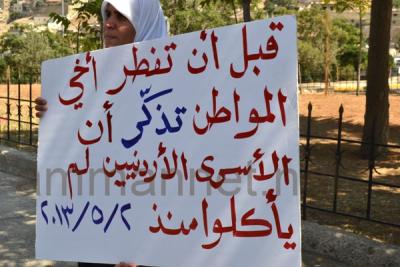 قبل أن تفطر أخي
المواطن تذكّر أن
الأسرى الأردنيين لم
يأكلوا منذ ٢٠١٣/٥/٢
ammannet.n